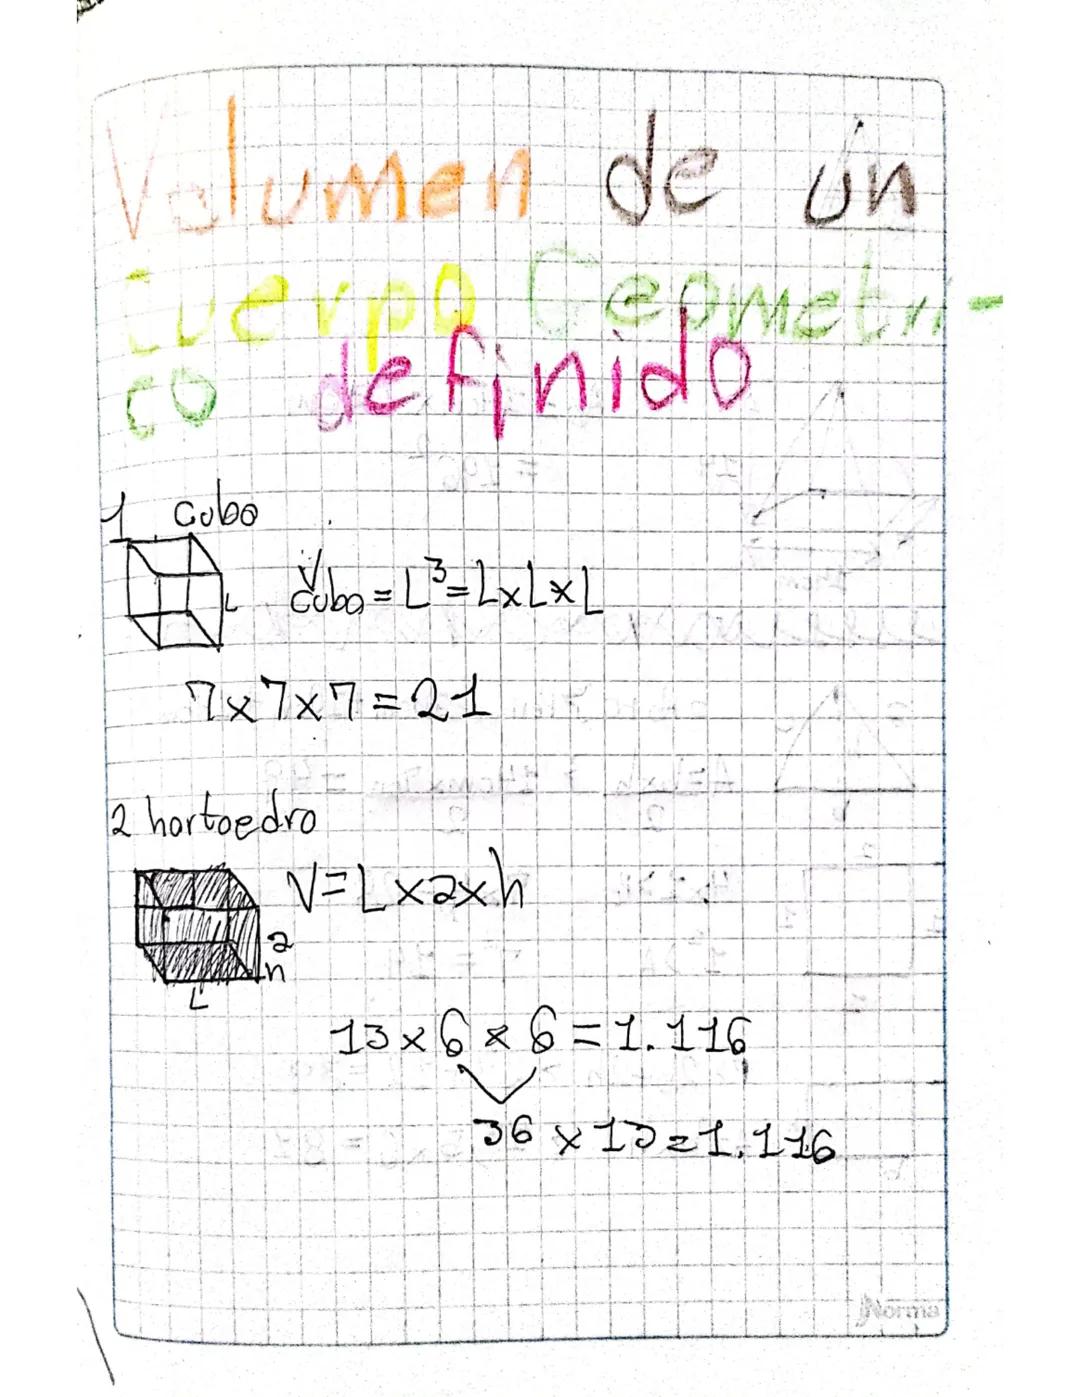 Volumen de un
Cuerpo Geometri-
co definido
1 Cubo
V cubo = L³ = L x L x L
L
7 x 7 x 7 = 21
2 hortoedro
V = L x a x h
a
h
L
13 x 6 x 6 = 1.116
36 x 13 = 1.116
Norma